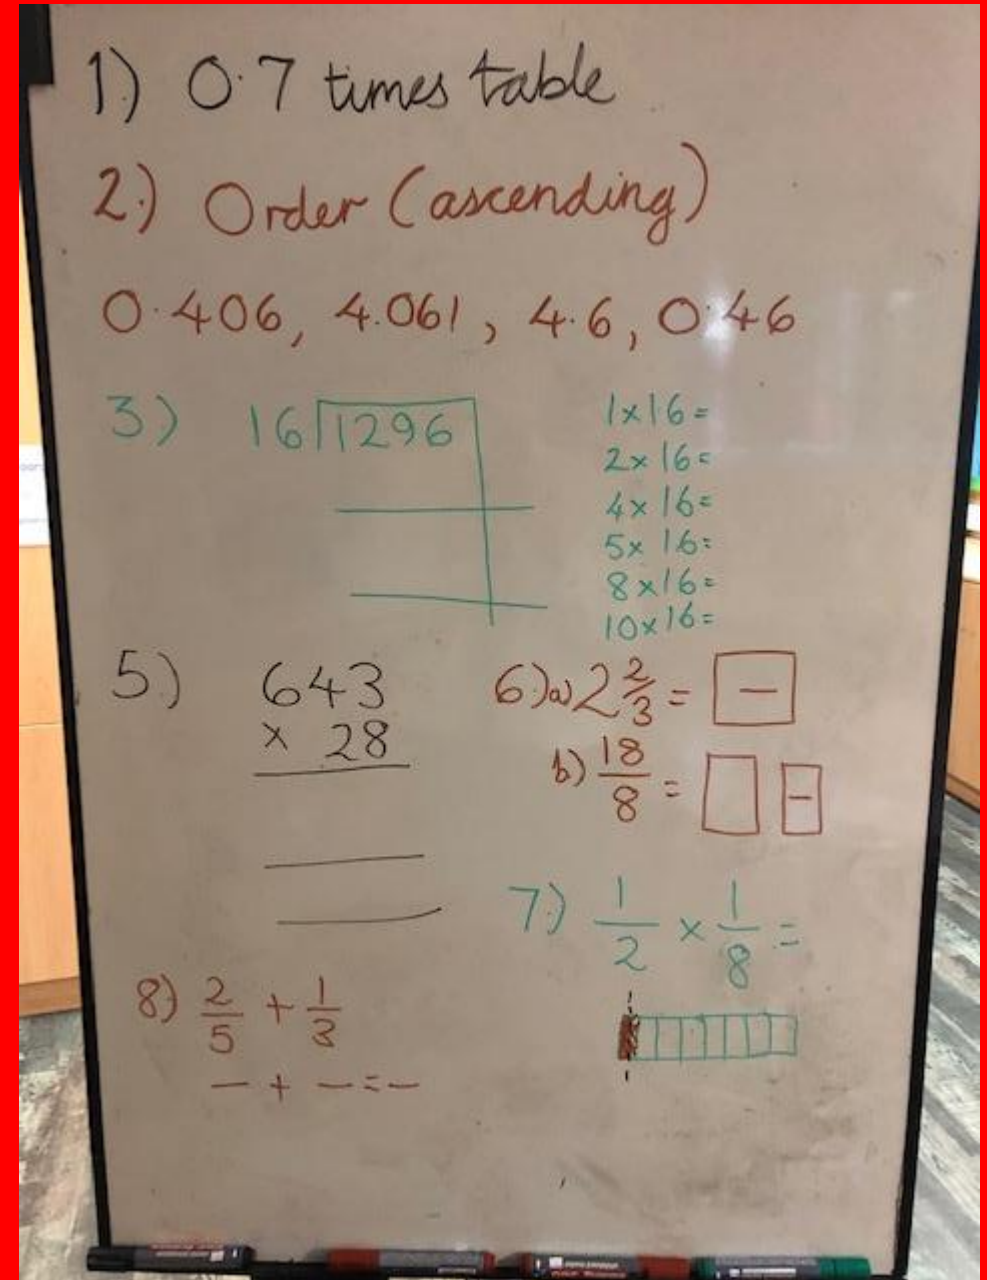 1) 0.7 times table
2.) Order (ascending)
0.406, 4.061, 4.6, 0.46
3) 16 1296
1x16=
2x16=
4x16=
5x16=
8x16=
10x16=
5.) 643
x 28
6.)a) 2 2/3 = —
b) 18/8 = —
7.) 1/2 x 1/8 =
8) 2/5 + 1/3
— + — = —